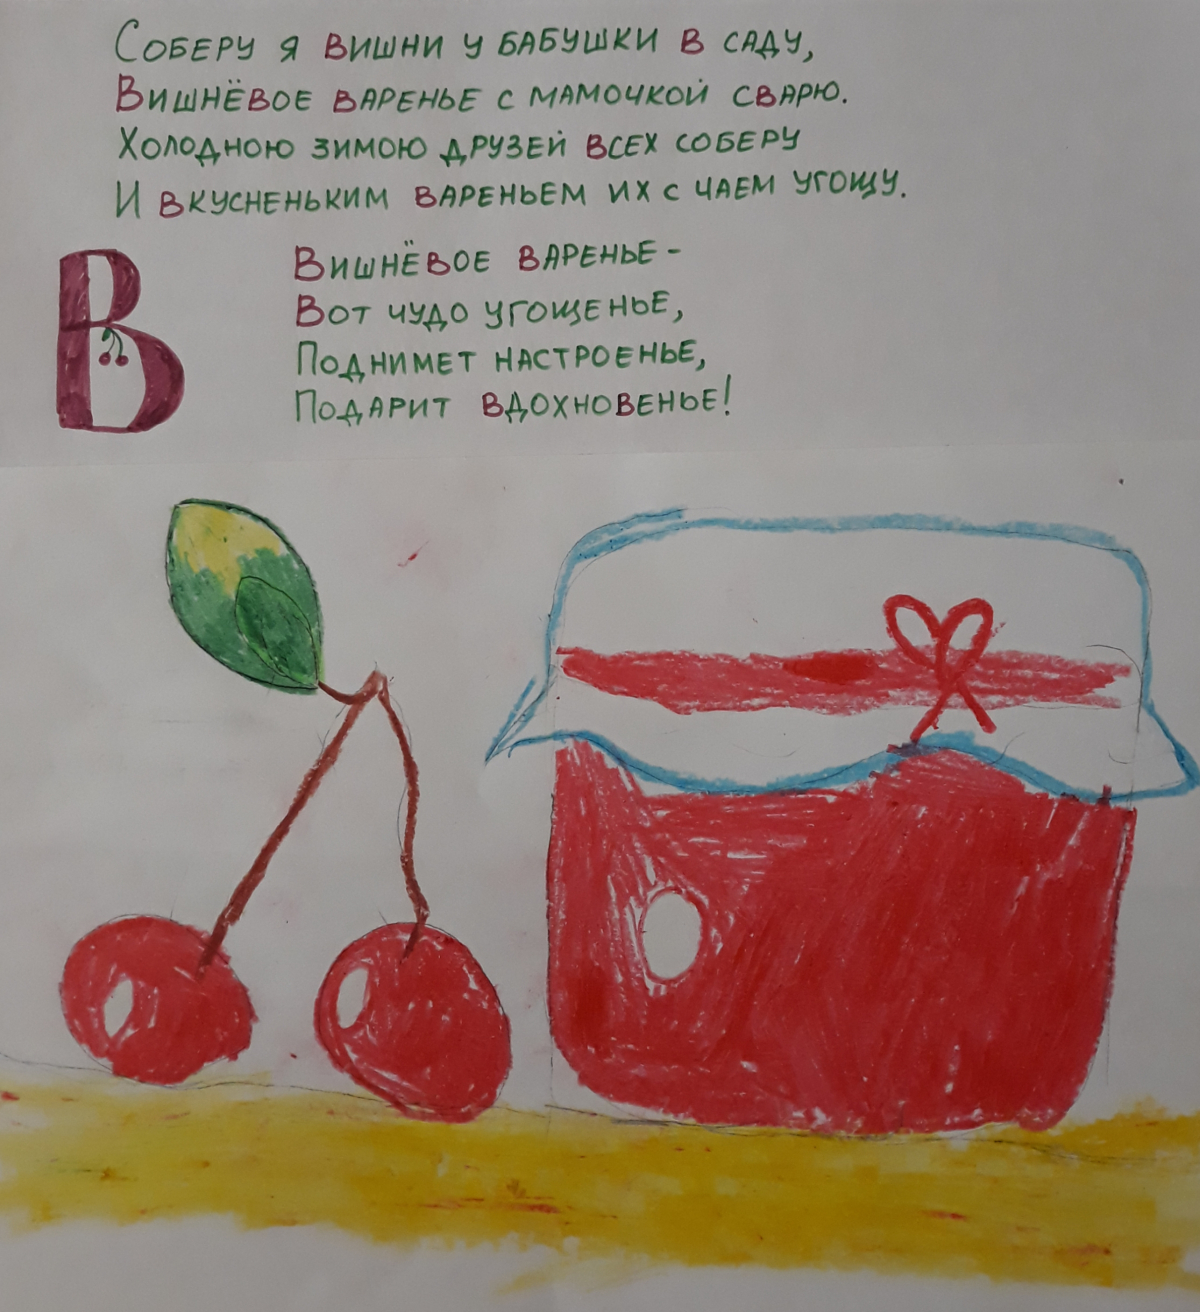 Соберу я вишни у бабушки в саду,
Вишнёвое варенье с мамочкой сварю.
Холодною зимою друзей всех соберу
И вкусненьким вареньем их с чаем угощу.
В
Вишнёвое варенье-
Вот чудо угощенье,
Поднимет настроенье,
Подарит вдохновенье!